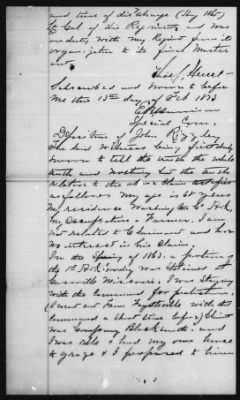 and time of discharge (Aug 1865)
Col of this Regiment and was
on duty with my Regmt from its
organization to its final Muster
out.
Subscribed and sworn to before
me this 13th day of Feb 1873
Special Com.
Deposition of John
The said witness being first duly
sworn to tell the truth the whole
truth and nothing but the truth
relative to the above Claim testifies
as follows My age is years
my residence Washington Co Ark
my occupation a Farmer. I am
not related to Claimant and have
no interest in his Claim.
In the Spring of 1863. a portion of
the 1st Ark Cavalry was stationed at
Cassville Missouri, I was staying
with the Command for protection.
(I went out from Fayetteville with the
command a short time before) Claimt
was Company Blacksmith. and
I was idle & had my own horse
to graze & I proposed to him